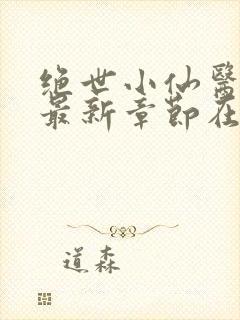 绝世小仙医
最新章节在
道森